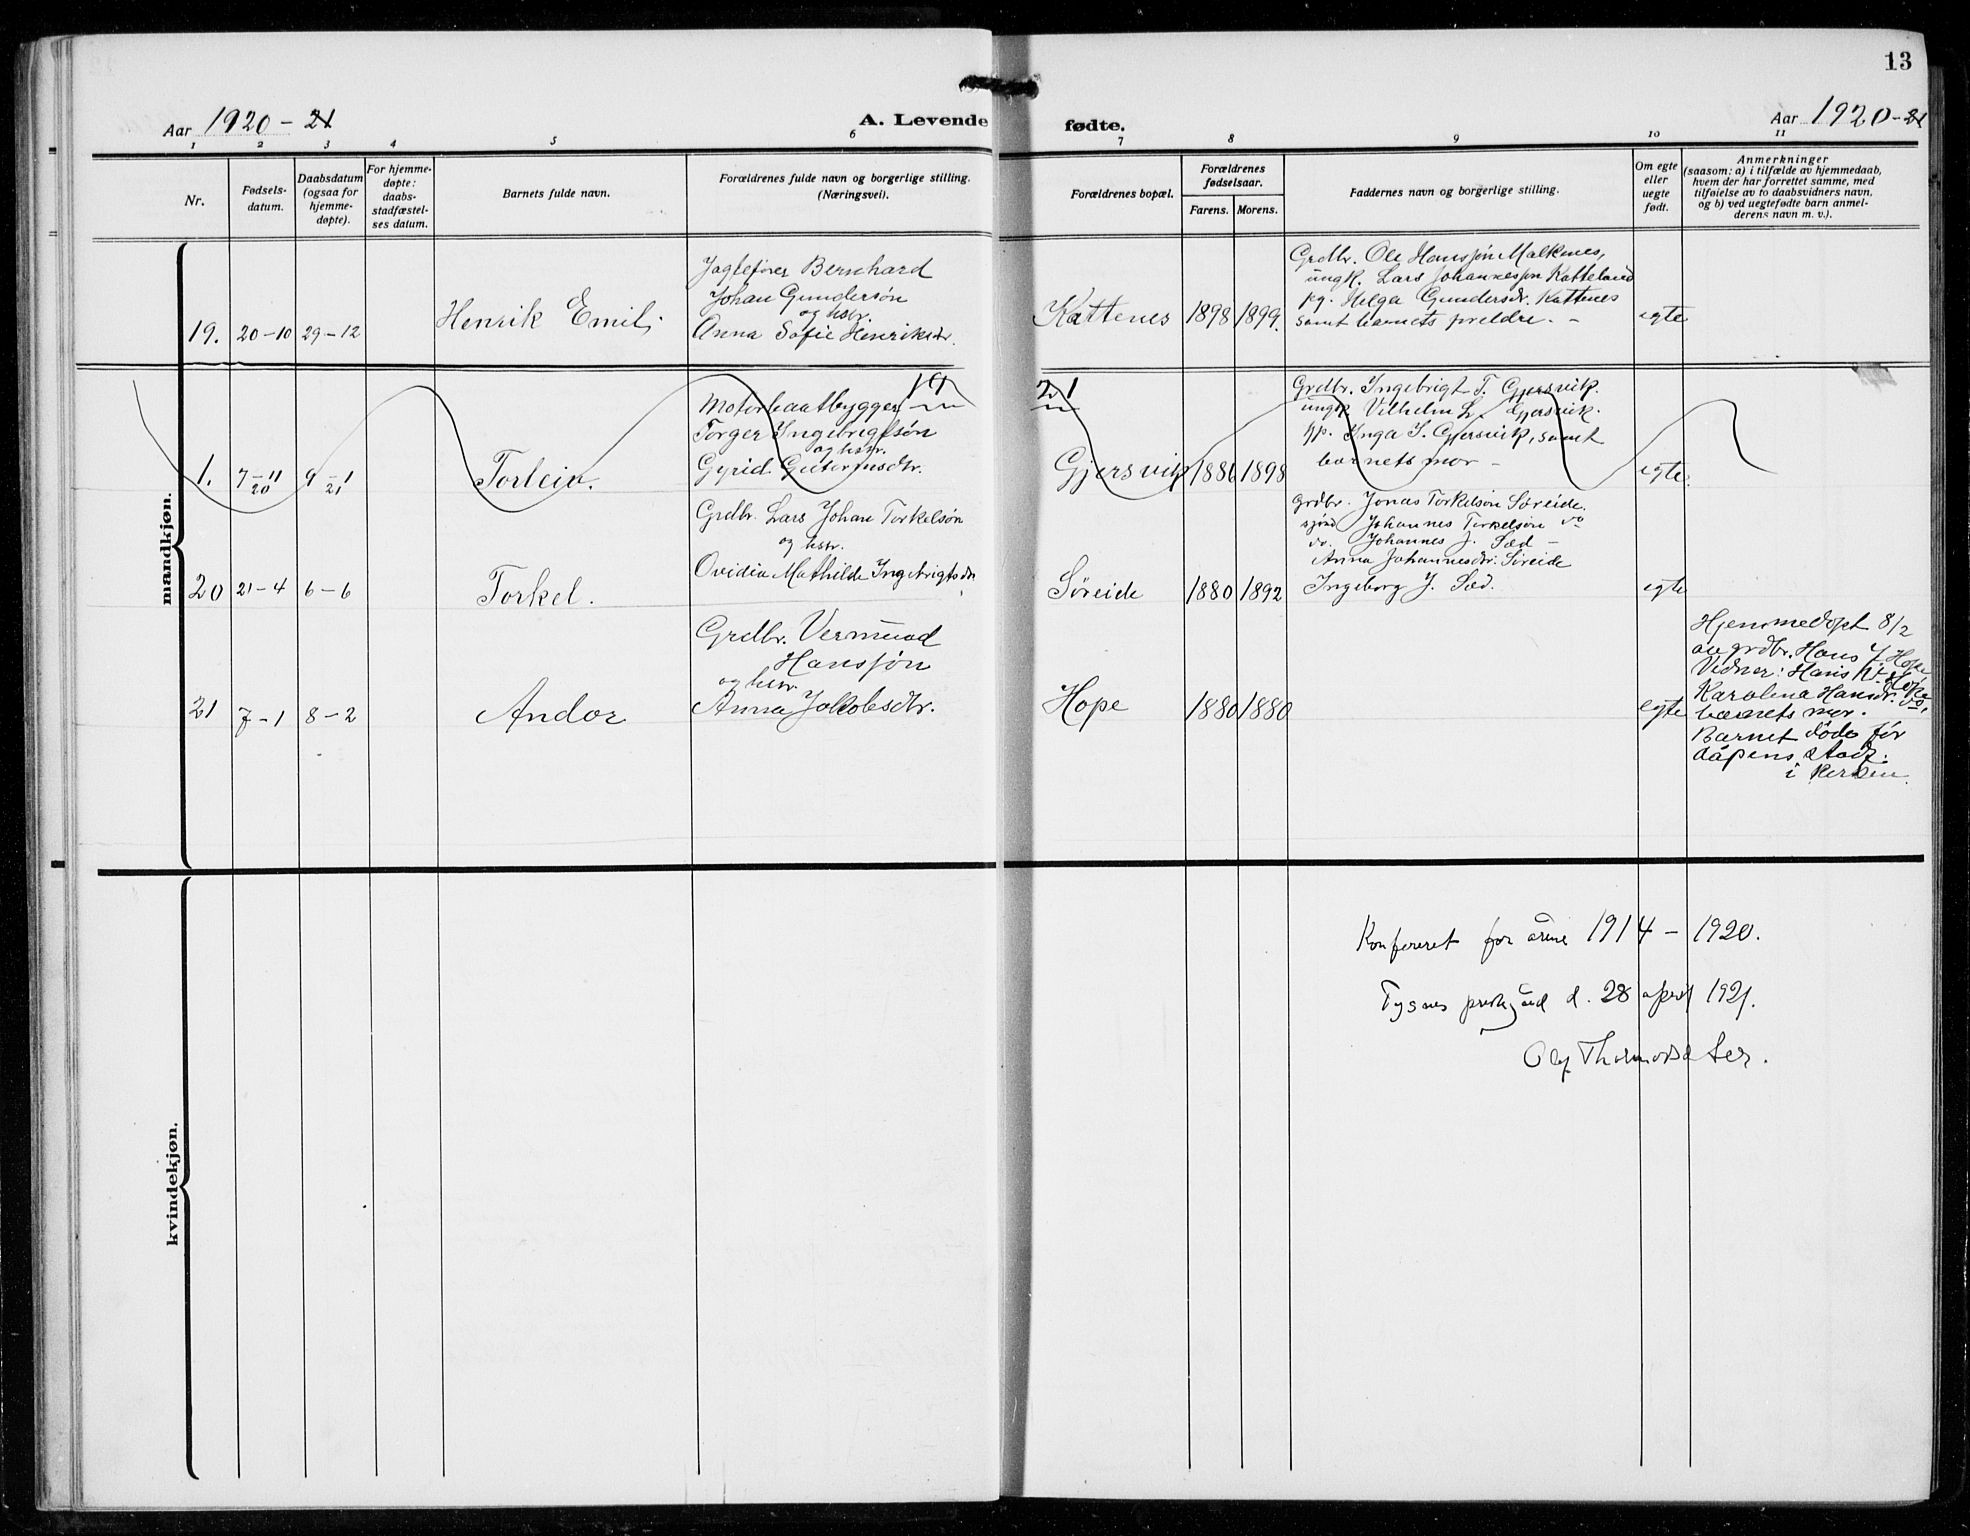 13
Aar 1920-21
A. Levende fødte.
Aar 1920-21
1 2 3 4 5 6 7 8 9 10 11
Nr.
Fødsels-
datum.
Daabsdatum
(ogsaa for
hjemme-
døpte).
For hjemme-
døpte:
daabs-
stadfæstel-
ses datum.
Barnets fulde navn.
Forældrenes fulde navn og borgerlige stilling.
(Næringsvei).
Forældrenes bopæl.
Forældrenes
fødselsaar.
Farens. Morens.
Faddernes navn og borgerlige stilling.
Om egte
eller
uegte
født.
Anmerkninger
(saasom: a) i tilfælde av hjemmedaab,
hvem der har forrettet samme, med
tilføielse av to daabsvidners navn,
og b) ved uegtefødte barn anmel-
derens navn m. v.).
mandkjøn.
19. 20-10 29-12
Henrik Emil
Jagtefører Bernhard
Johan Gundersøn
og hstr.
Anna Sofie Henriksdr.
Kattenes 1898 1899.
Grdbr. Ole Hanssøn Malkenes,
ungk. Lars Johannessøn Katteland
pg. Helga Gundersdr. Kattenes
samt barnets foreldre. -
egte
19 21
1. 7-11 20 9-1 21
Torleiv.
Motorbaatbygger
Torger Ingebrigtsøn
og hstr.
Gyrid Guttormsdtr.
Gjersvik 1886 1898
Grdbr. Ingebrigt T. Gjersvik.
ungk. Vilhelm L. Gjersvik.
pp. Inga I. Gjersvik, samt
barnets mor -
egte.
20 21-4 6-6
Torkel.
Grdbr. Lars Johan Torkelsøn
og hstr.
Ovidia Mathilde Ingebrigtsdr.
Søreide 1880 1892
Grdbr. Jonas Torkelsøn Søreide.
sjømd Johannes Torkelsøn do
do. Johannes J. Sæd -
Anna Johannesdtr. Søreide
Ingeborg J. Sæd.
egte
21 7-1 8-2
Andor
Grdbr. Vermund
Hanssøn
og hstr.
Anna Jakobsdtr.
Hope 1880 1880
egte
Hjemmedøpt 8/2
av grdbr. Hans J. Hope
Vidner: Hans Hope
Karolina Hansdr. do,
barnets mor.
Barnet døde før
dåpens stadf.
i kirken.
kvindekjøn.
Konfereret for årene 1914 - 1920.
Tysnes prestegård d. 28 april 1921.
Olaf Thormodsæter.